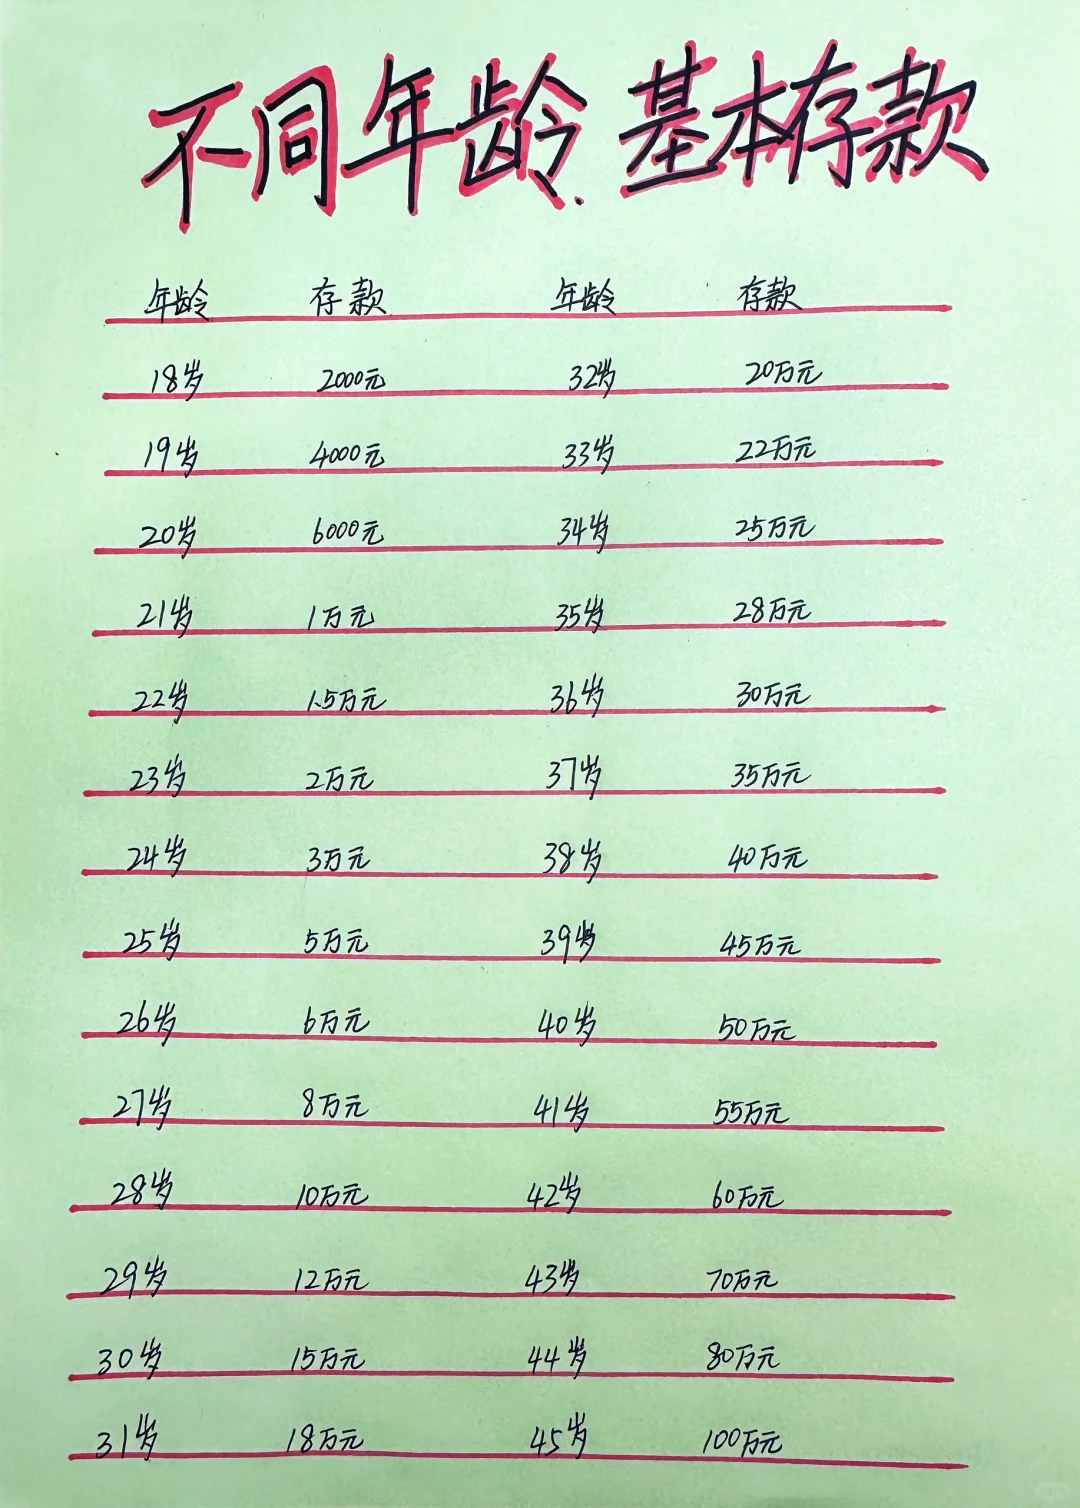 不同年龄基本存款
年龄 存款 年龄 存款
18岁 2000元 32岁 20万元
19岁 4000元 33岁 22万元
20岁 6000元 34岁 25万元
21岁 1万元 35岁 28万元
22岁 1.5万元 36岁 30万元
23岁 2万元 37岁 35万元
24岁 3万元 38岁 40万元
25岁 5万元 39岁 45万元
26岁 6万元 40岁 50万元
27岁 8万元 41岁 55万元
28岁 10万元 42岁 60万元
29岁 12万元 43岁 70万元
30岁 15万元 44岁 80万元
31岁 18万元 45岁 100万元